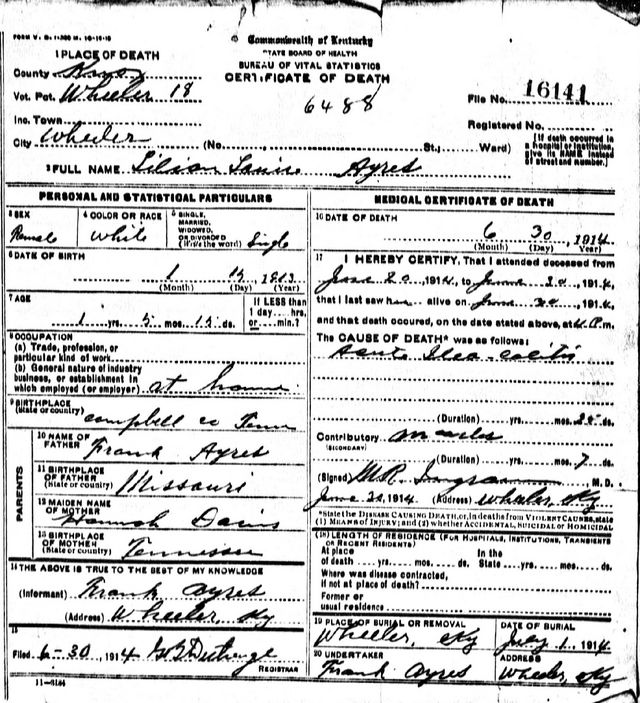 Commonwealth of Kentucky
STATE BOARD OF HEALTH
BUREAU OF VITAL STATISTICS
CERTIFICATE OF DEATH
1 PLACE OF DEATH
County Knox
Vot. Pct. Wheeler 18
Inc. Town
City Wheeler (No. St.; Ward)
6488
File No. 16141
Registered No.
[If death occurred in a hospital or institution, give its NAME instead of street and number.]
2 FULL NAME Lilian Ayres
PERSONAL AND STATISTICAL PARTICULARS
3 SEX
Female
4 COLOR OR RACE
White
5 SINGLE, MARRIED, WIDOWED, OR DIVORCED (Write the word) Single
6 DATE OF BIRTH
1 15
(Month) (Day) (Year)
7 AGE
1 yrs. 5 mos. 15 ds.
If LESS than 1 day, hrs. or min.?
8 OCCUPATION
(a) Trade, profession, or particular kind of work
(b) General nature of industry business, or establishment in which employed (or employer) at home
9 BIRTHPLACE (State or country) Campbell co Tenn
PARENTS
10 NAME OF FATHER Frank Ayres
11 BIRTHPLACE OF FATHER (State or country) Missouri
12 MAIDEN NAME OF MOTHER Hannah Davis
13 BIRTHPLACE OF MOTHER (State or country) Tennessee
14 THE ABOVE IS TRUE TO THE BEST OF MY KNOWLEDGE
(Informant) Frank Ayres
(Address) Wheeler, Ky
15
Filed 6-30, 1914
REGISTRAR
11-3184
MEDICAL CERTIFICATE OF DEATH
16 DATE OF DEATH
6 30, 1914
(Month) (Day) (Year)
17 I HEREBY CERTIFY, That I attended deceased from
June 20, 1914, to June 30, 1914,
that I last saw her alive on June 30, 1914,
and that death occured, on the date stated above, at 4 P.m.
The CAUSE OF DEATH* was as follows:
Acute Ileo-colitis
(Duration) yrs. mos. ds.
Contributory Measles
(SECONDARY)
(Duration) yrs. mos. 7 ds.
(Signed) M.R. Ingram, M. D.
June, 1914 (Address) Wheeler, Ky
*State the DISEASE CAUSING DEATH, or, in deaths from VIOLENT CAUSES, state
(1) MEANS OF INJURY; and (2) whether ACCIDENTAL, SUICIDAL or HOMICIDAL
(18) LENGTH OF RESIDENCE (FOR HOSPITALS, INSTITUTIONS, TRANSIENTS OR RECENT RESIDENTS)
At place of death yrs. mos. ds. In the State yrs. mos. ds.
Where was disease contracted, if not at place of death?
Former or usual residence
19 PLACE OF BURIAL OR REMOVAL
Wheeler, Ky
DATE OF BURIAL
July 1, 1914
20 UNDERTAKER
Frank Ayres
ADDRESS
Wheeler, Ky